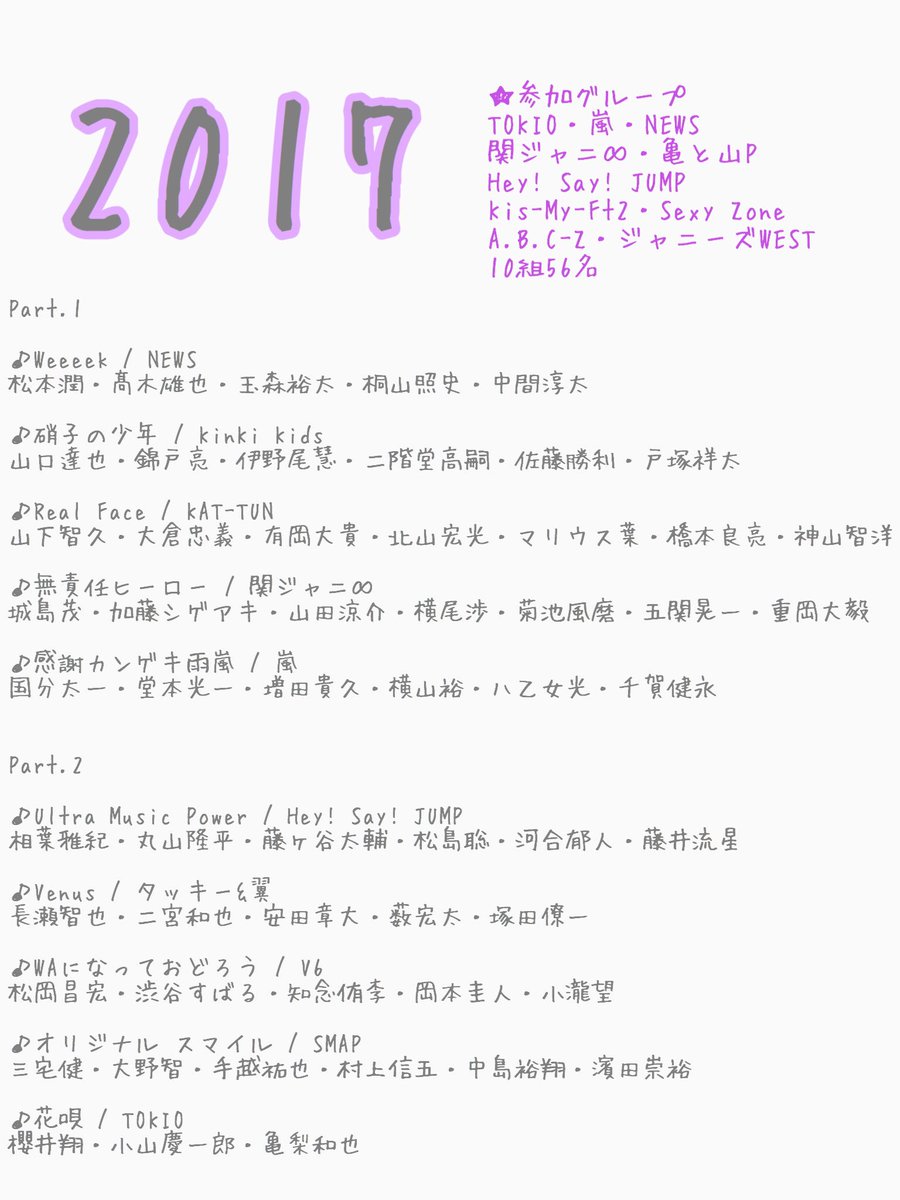 2017
★参加グループ
TOKIO・嵐・NEWS
関ジャニ∞・亀と山P
Hey! Say! JUMP
kis-My-Ft2・Sexy Zone
A.B.C-Z・ジャニーズWEST
10組56名
Part.1
♪Weeeek / NEWS
松本潤・髙木雄也・玉森裕太・桐山照史・中間淳太
♪硝子の少年 / kinki kids
山口達也・錦戸亮・伊野尾慧・二階堂高嗣・佐藤勝利・戸塚祥太
♪Real Face / KAT-TUN
山下智久・大倉忠義・有岡大貴・北山宏光・マリウス葉・橋本良亮・神山智洋
♪無責任ヒーロー / 関ジャニ∞
城島茂・加藤シゲアキ・山田涼介・横尾渉・菊池風磨・五関晃一・重岡大毅
♪感謝カンゲキ雨嵐 / 嵐
国分太一・堂本光一・増田貴久・横山裕・八乙女光・千賀健永
Part.2
♪Ultra Music Power / Hey! Say! JUMP
相葉雅紀・丸山隆平・藤ヶ谷太輔・松島聡・河合郁人・藤井流星
♪Venus / タッキー&翼
長瀬智也・二宮和也・安田章大・薮宏太・塚田僚一
♪WAになっておどろう / V6
松岡昌宏・渋谷すばる・知念侑李・岡本圭人・小瀧望
♪オリジナル スマイル / SMAP
三宅健・大野智・手越祐也・村上信五・中島裕翔・濱田崇裕
♪花唄 / TOKIO
櫻井翔・小山慶一郎・亀梨和也